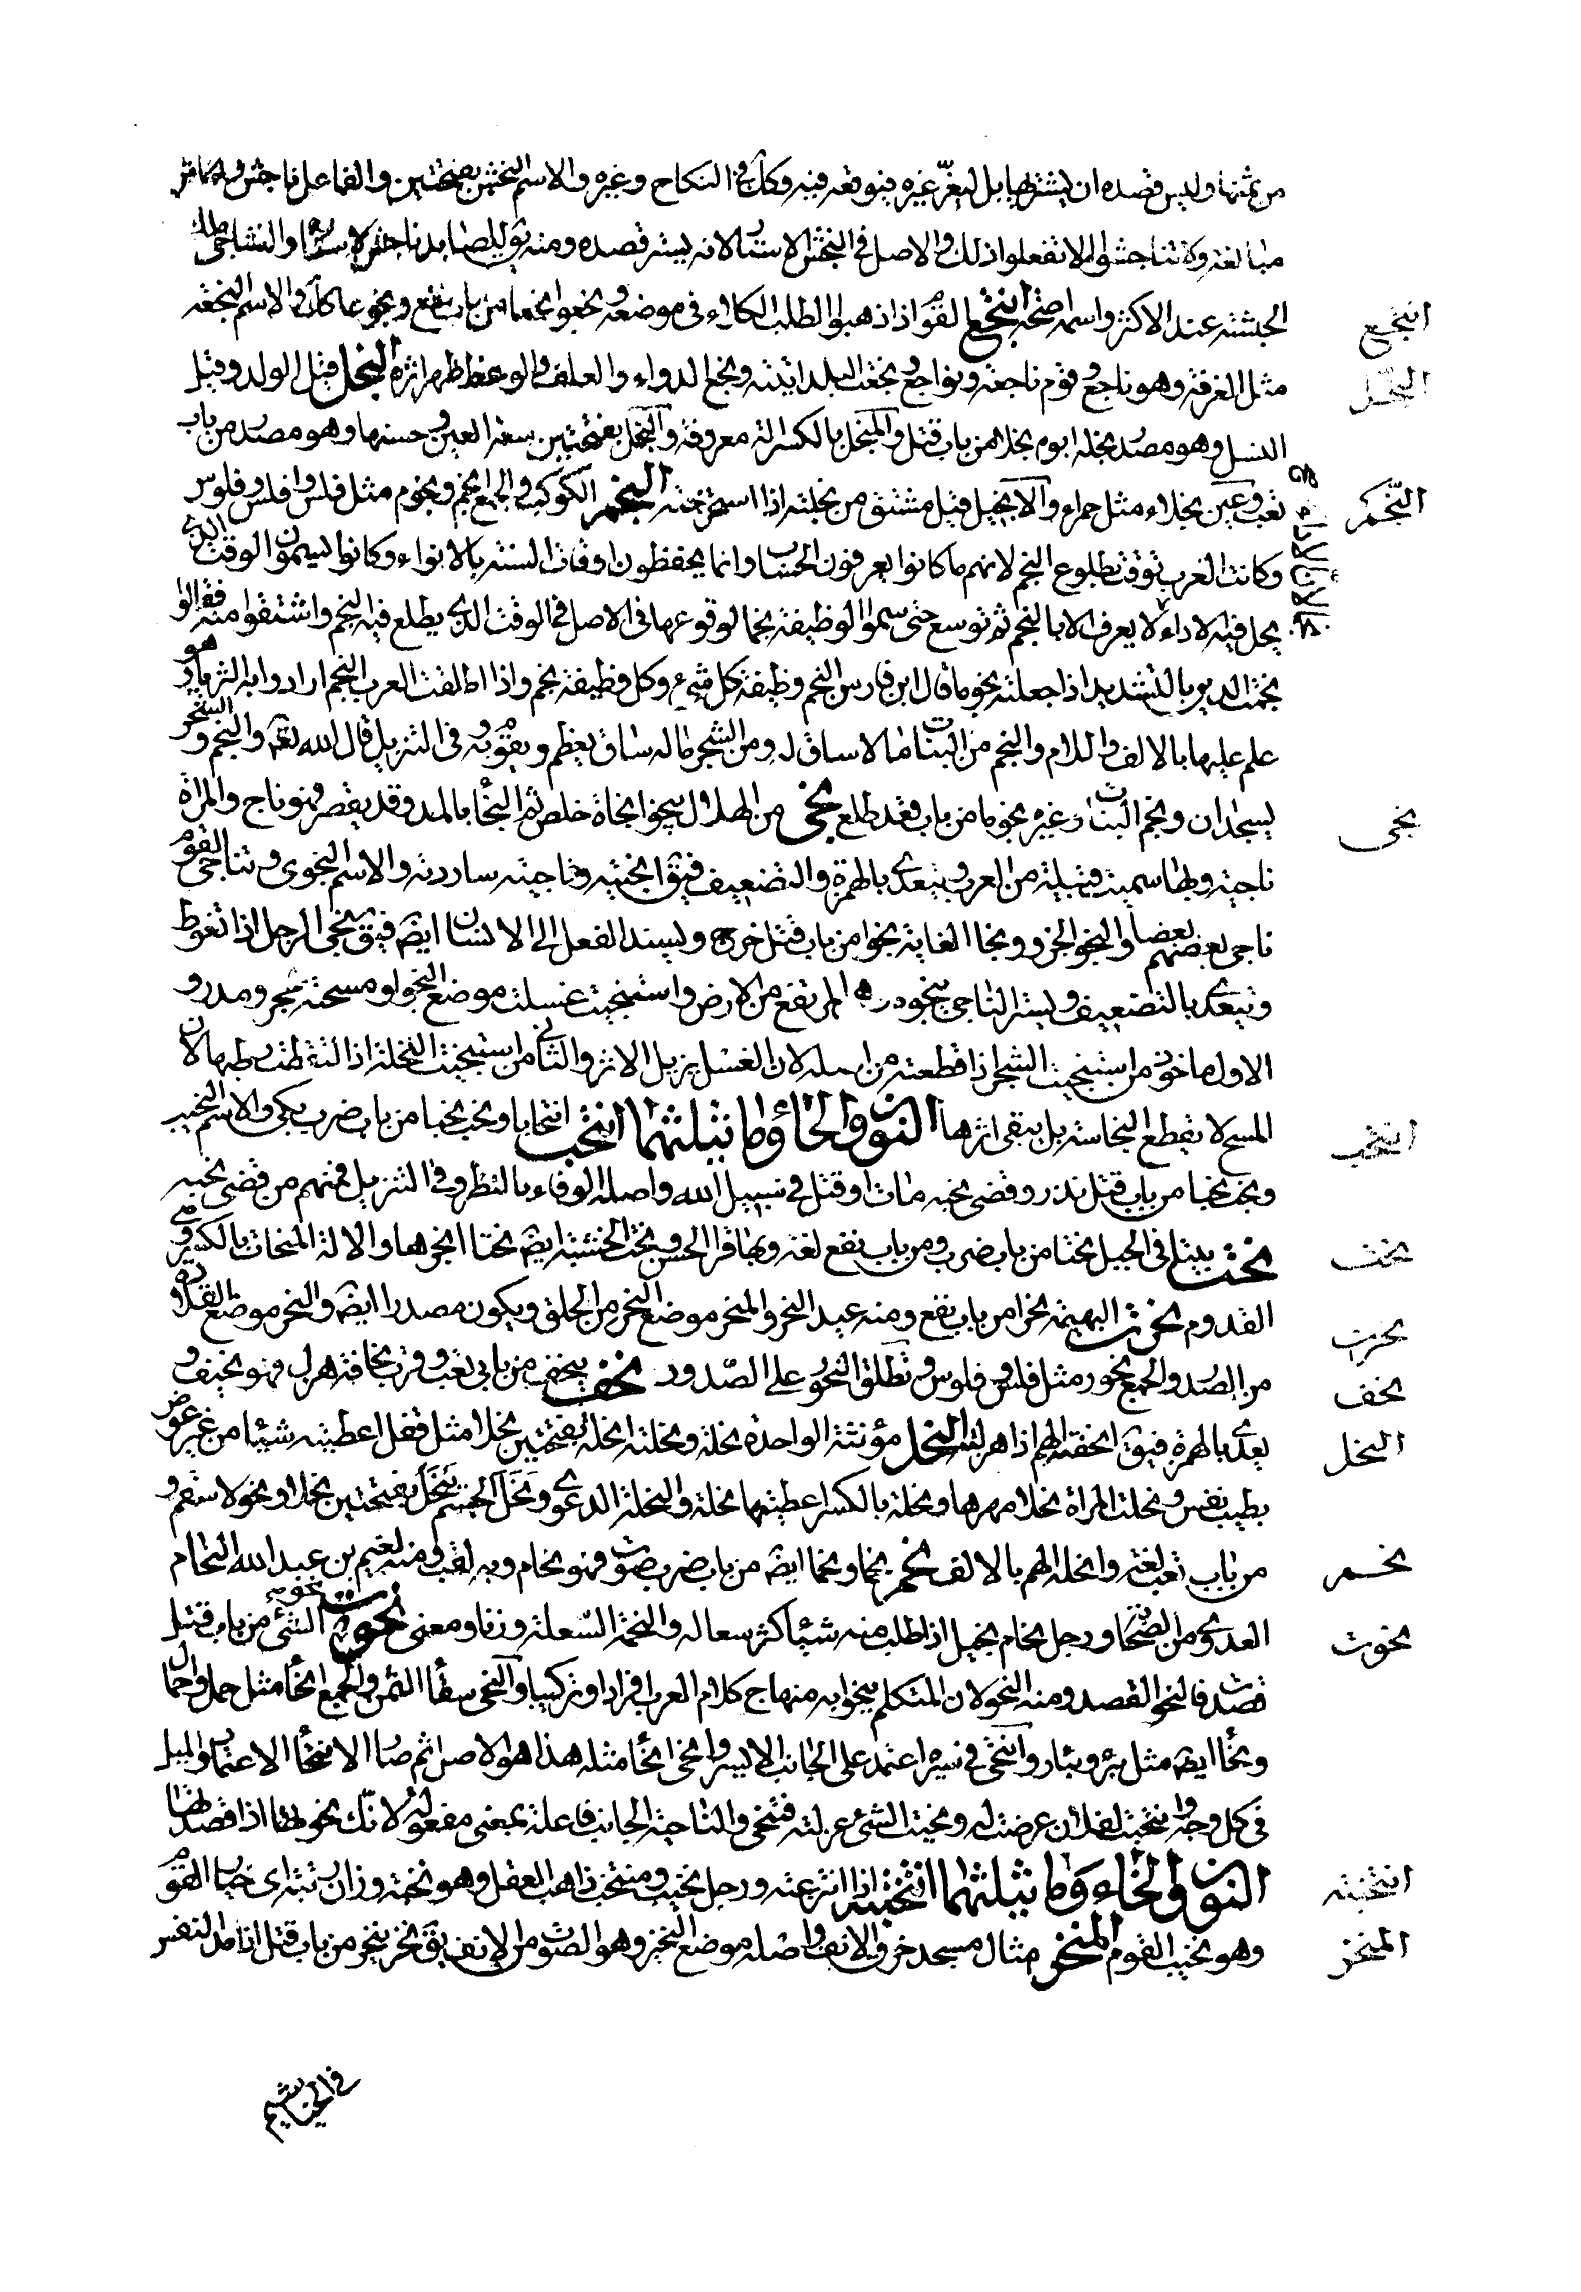 من ثمنها وليس قصده ان يشتريها بل ليغرّ غيره فيوقعه فيه وكك فى النكاح وغيره والاسم النجش بفتحتين والفاعل ناجش و نجاش
مبالغة ولا تناجشوا لا تفعلوا ذلك والاصل فى النجش الاستتار لانه يستر قصده ومنه يق للصايد ناجش لاستتاره والنجاشى ملك
الحبشة عند الاكثر واسمه اصحمة انتجع القوم اذا ذهبوا لطلب الكلاء فى موضعه ونجعوا نجعا من باب نفع ونجوعا كك والاسم النجعة
مثل الغرفة وهو ناجع وقوم ناجعة ونواجع ونجعت البلد اتيته ونجع الدواء والعلف والوعظ ظهر اثره النجل قيل الولد وقيل
النسل وهو مصدر نجله ابوه نجلا من باب قتل والمنجل بالكسر الة معروفة والنجل بفتحتين سعة العين وحسنها وهو مصدر من باب
تعب وعين نجلاء مثل حمراء والانجيل قيل مشتق من نجلته اذا استخرجته النجم الكوكب والجمع انجم ونجوم مثل فلس وافلس وفلوس
وكانت العرب توقت بطلوع النجم لانهم ما كانوا يعرفون الحساب وانما يحفظون اوقات السنة بالانواء وكانوا يسمون الوقت الذى
يحل فيه الاداء لا يعرف الا بالنجم ثم توسع حتى سموا الوظيفة نجما لوقوعها فى الاصل فى الوقت الذى يطلع فيه النجم واشتقوا منه فقالوا
نجمت الدين بالتشديد اذا جعلته نجوما قال ابن فارس النجم وظيفة كل شىء وكل وظيفة نجم واذا اطلقت العرب النجم ارادوا به الثريا وهو
علم عليها بالالف واللام والنجم من النبات ما لا ساق له ومن الشجر ما له ساق يعظم ويقوم به وفى التنزيل قال الله تعم والنجم والشجر
يسجدان ونجم النبات وغيره نجوما من باب قعد طلع نجى من الهلاك ينجو نجاة خلص ثم النجا بالمد وقد يقصر فهو ناج والمراة
ناجية وبها سميت قبيلة من العرب ويتعدى بالهمزة والتضعيف فيق انجيته وناجيته ساررته والاسم النجوى وتناجى القوم
ناجى بعضهم بعضا والنجو الخرو ونجا الغايط نجوا من باب قتل خرج ويسند الفعل الى الانسان ايضا فيق نجى الرجل اذا تغوط
ويتعدى بالتضعيف ويستتر الناجى بنجوه المرتفع من الارض واستنجيت غسلت موضع النجو او مسحته بحجر ومدر و
الاول ماخوذ من استنجيت الشجر اذا قطعته من اصله لان الغسل يزيل الاثر والثانى من استنجيت النخلة اذا التقطت رطبها لان
المسح لا يقطع النجاسة بل يبقى اثرها النون والحاء وما يثلثهما انتحب انتحابا ونحب نحبا من باب ضرب بكى والاسم النحيب
ونحب نحبا من باب قتل نذر وقضى نحبه مات او قتل فى سبيل الله واصله الوفاء بالنذر وفى التنزيل فمنهم من قضى نحبه
نحت بيتا فى الجبل نحتا من باب ضرب ومن باب نفع لغة وبها قرا الحسن ونحت الخشبة ايضا نحتا نجرها والالة المنحات بالكسر وهى
القدوم نحرت البهيمة نحرا من باب نفع ومنه عيد النحر والمنحر موضع النحر من الحلق ويكون مصدرا ايضا والنحر موضع القلادة
من الصدر والجمع نحور مثل فلس وفلوس وتطلق النحور على الصّدور نحف ينحف من بابى تعب وقرب نحافة هزل فهو نحيف و
يعدى بالهمزة فيق انحفه الهم اذا هزله النحل مؤنثة الواحدة نحلة ونحلته انحله بفتحتين نحلا مثل قفل اعطيته شيئا من غير عوض
بطيب نفس ونحلت المراة نحلا مهرها ونحلة بالكسر اعطيتها نحلة والنحلة الدعوى ونحل الجسم ينحل بفتحتين نحلا ونحولا سقم و
من باب تعب لغة وانحله الهم بالالف نحم نحما ونحيما ايضا من باب ضرب صوت فهو نحام وبه لقب ومنه نعيم بن عبد الله النحام
العدوى من الصحابة ورجل نحام بخيل اذا طلب منه شيئا كثر سعاله والنحمة السّعلة وزنا ومعنى نحوت نحو الشىء من باب قتل
قصدت فالنحو القصد ومنه النحو لان المتكلم ينحو به منهاج كلام العرب افرادا وتركيبا والنحى سقاء السمن والجمع انحاء مثل حمل واحمال
ونحاء ايضا مثل بئر وبئار وانتحى فى سيره اعتمد على الجانب الايسر وانحى انحاء مثله هذا هو الاصل ثم صار الانتحاء الاعتماد والميل
فى كل وجه وانتحيت لفلان عرضت له ونحيت الشىء عزلته فتنحى والناحية الجانب فاعلة بمعنى مفعولة لانّك نحوتها اذا قصدتها
النون والخاء وما يثلثهما انتخبته اذا انتزعته ورجل نخيب ومنتخب ذاهب العقل وهو نخبة وزان رتبة اى خيار القوم
وهو نخيب القوم المنخر مثال مسجد خرق الانف واصله موضع النخير وهو الصوت من الانف يق نخر ينخر من باب قتل اذا مد النفس
انتجع
النجل
النّجم
نجى
انتحب
نحت
نحرت
نحف
النحل
نحم
نحوت
انتخبته
المنخر
فى الخياشيم